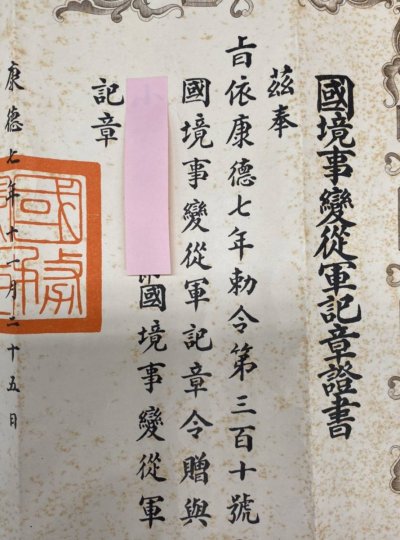 國境事變從軍記章證書
茲奉
旨依康德七年勅令第三百十號
國境事變從軍記章令贈與
國境事變從軍
記章
康德七年十一月二十五日